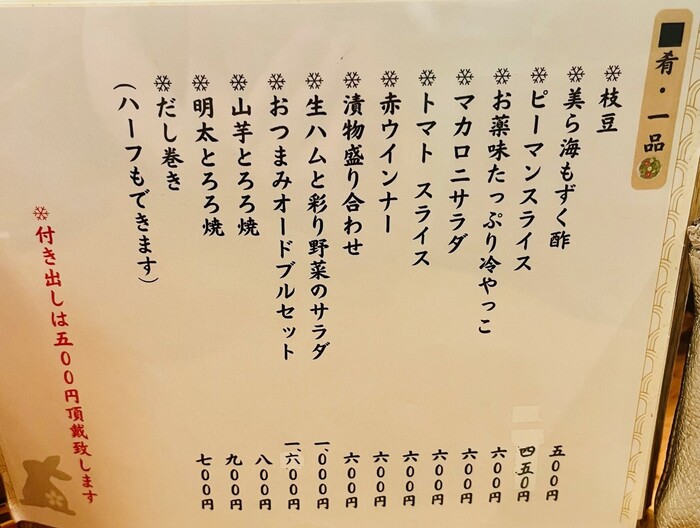 ■肴・一品
❄枝豆 五〇〇円
❄美ら海もずく酢 四五〇円
❄ピーマンスライス 六〇〇円
❄お薬味たっぷり冷やっこ 六〇〇円
❄マカロニサラダ 六〇〇円
❄トマト スライス 六〇〇円
❄赤ウインナー 六〇〇円
❄漬物盛り合わせ 六〇〇円
❄生ハムと彩り野菜のサラダ 一、〇〇〇円
❄おつまみオードブルセット 一、六〇〇円
❄山芋とろろ焼 八〇〇円
❄明太とろろ焼 九〇〇円
❄だし巻き 七〇〇円
(ハーフもできます)
❄付き出しは五〇〇円頂戴致します